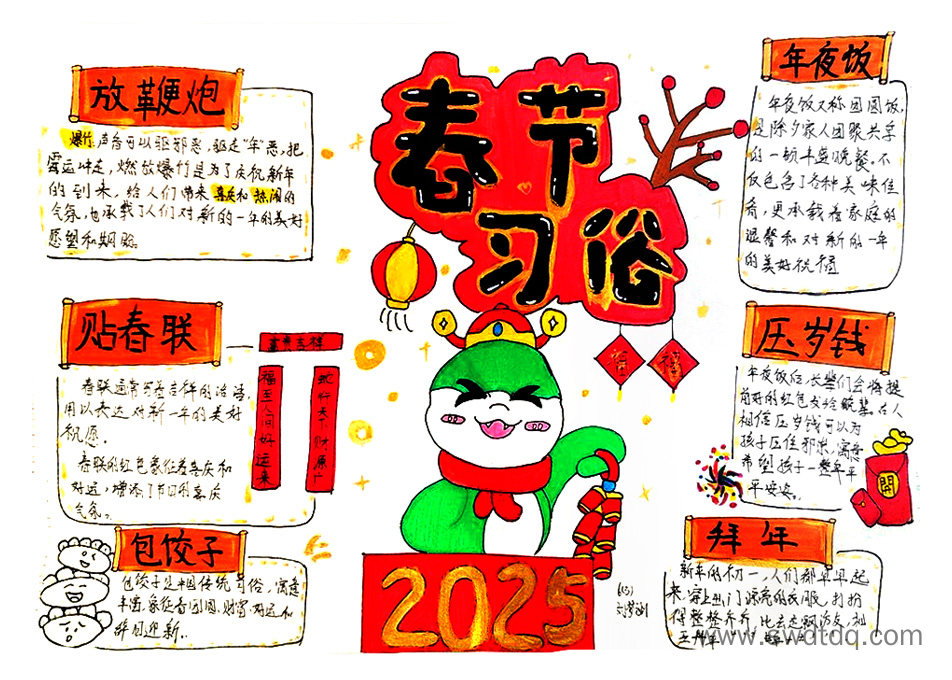 春节
习俗
放鞭炮
爆竹声音可以驱邪恶，驱走"年"恶，把
霉运冲走，燃放爆竹是为了庆祝新年
的到来，给人们带来喜庆和热闹的
气氛，也承载了人们对新的一年的美好
愿望和期盼。
贴春联
春联通常写着吉祥的话语，
用以表达对新一年的美好
祝愿。
春联的红色象征着喜庆和
好运，增添了节日的喜庆
气氛。
吉祥
福至人间好运来
蛇行天下财源广
包饺子
包饺子是中国传统习俗，寓意
丰富，象征着团圆、财富、好运和
辞旧迎新。
年夜饭
年夜饭又称团圆饭，
是除夕家人团聚共享
的一顿丰盛晚餐。不
仅包含了各种美味佳
肴，更承载着家庭的
温馨和对新的一年
的美好祝福
压岁钱
年夜饭后，长辈们会将提
前好的红包发给晚辈。古人
相信压岁钱可以为
孩子压住邪祟，寓意
希望孩子一整年平
平安安。
拜年
新年的初一，人们都早早起
来，穿上漂亮的衣服，打扮
得整整齐齐，
福
禧
2025
www.swdtdq.com